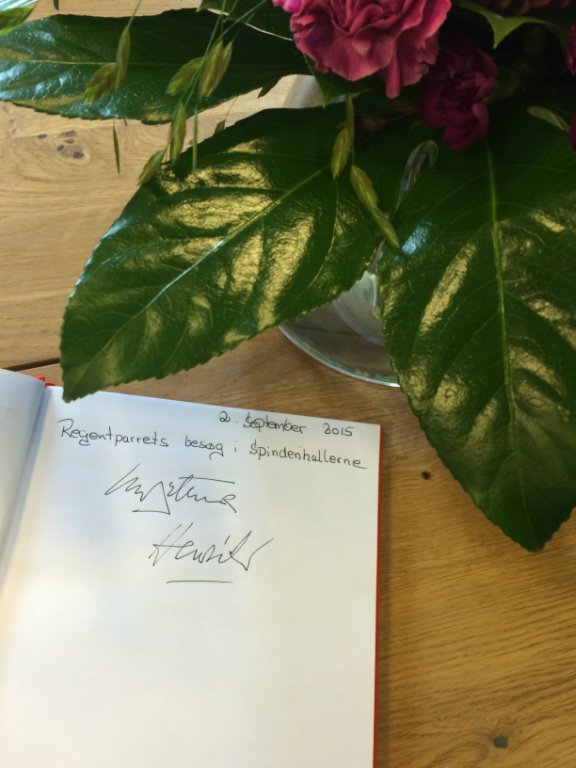 2. September 2015
Regentparrets besøg i Spindenhallerne
Margrethe
Henrik